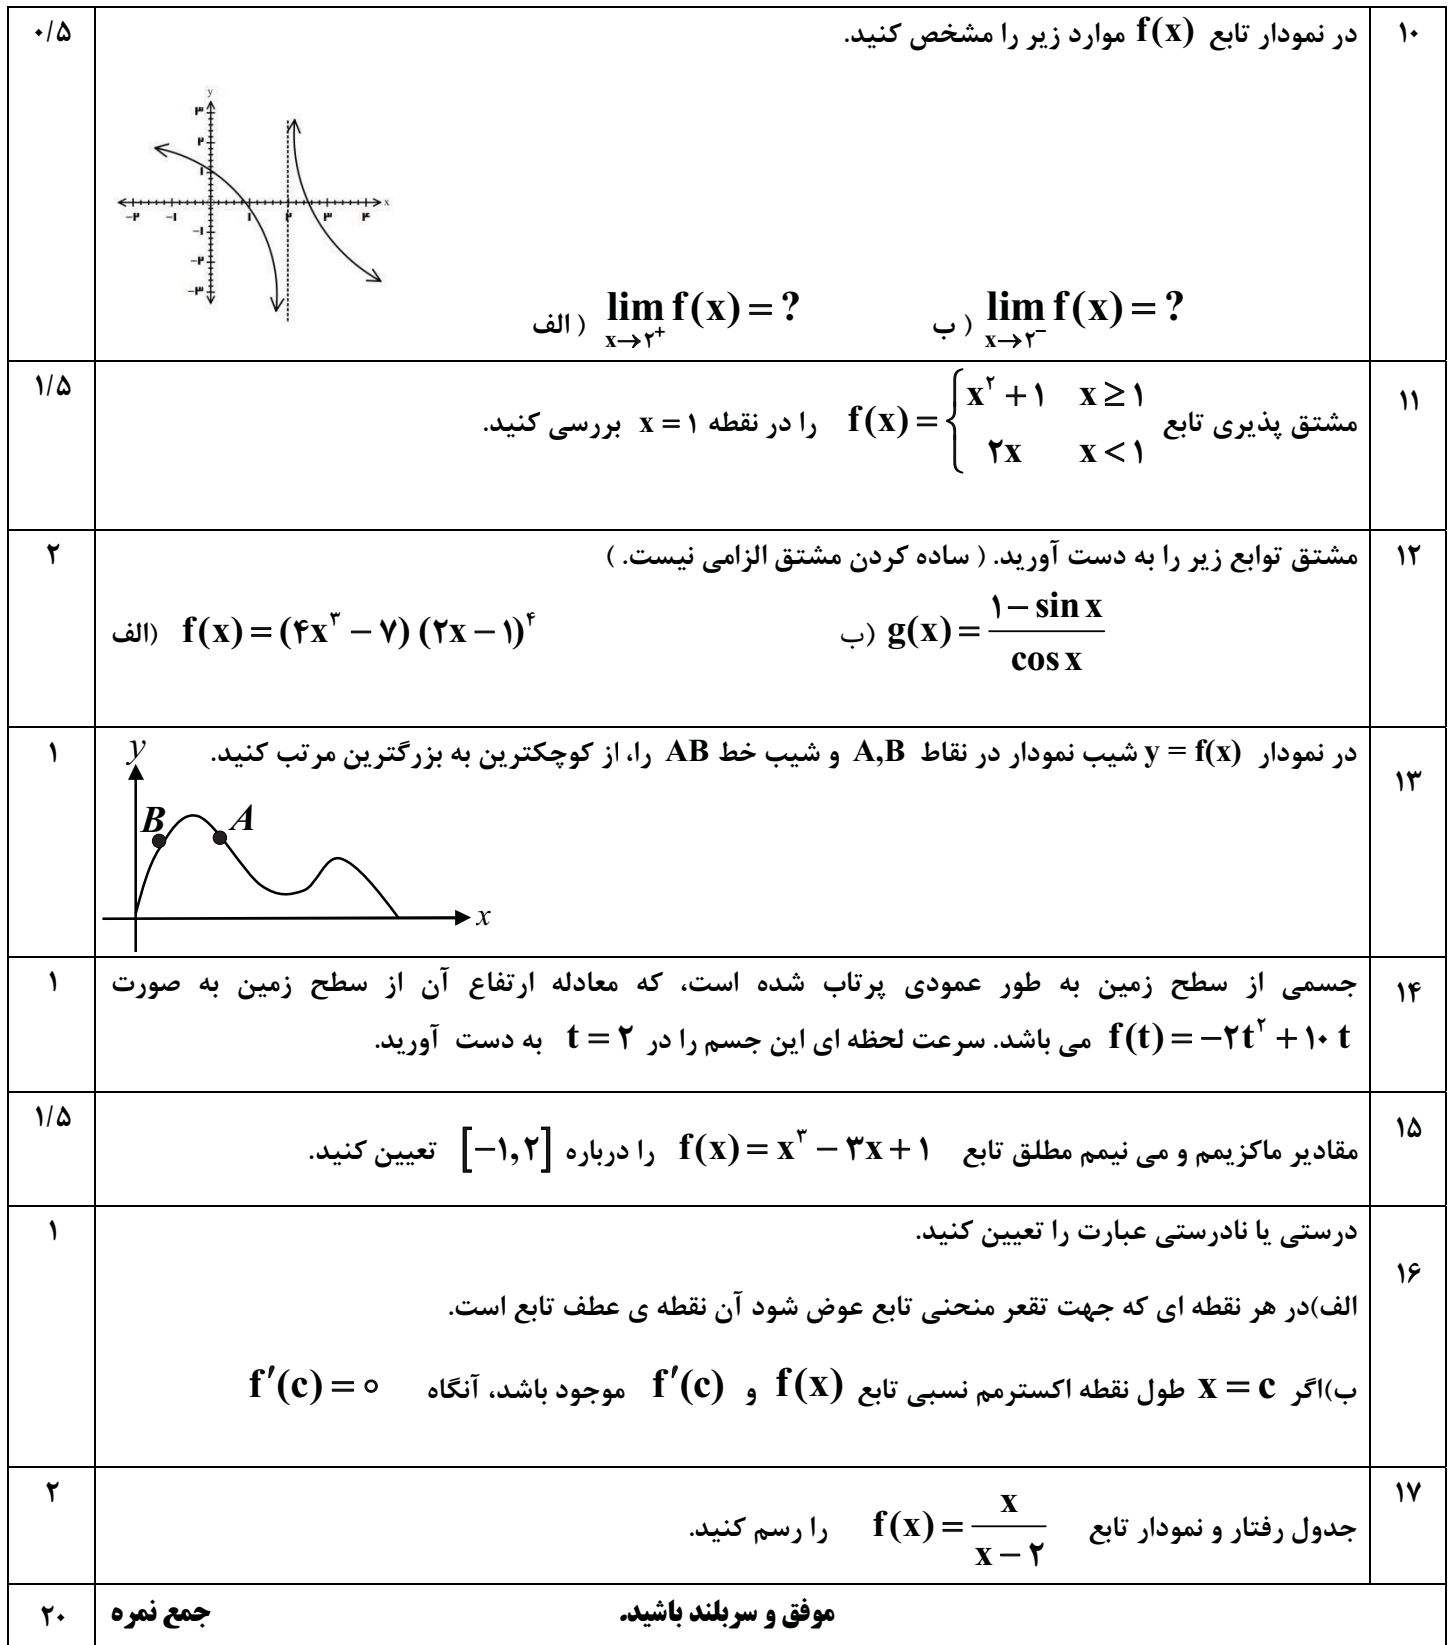 ۱۰ در نمودار تابع f(x) موارد زیر را مشخص کنید. ۰/۵
y
۳
۲
۱
-۲ -۱ ۱ ۲ ۳ ۴ x
-۱
-۲
-۳
الف ) lim x→۲⁺ f(x) = ? ب ) lim x→۲⁻ f(x) = ?
۱۱ مشتق پذیری تابع f(x) = { x² + ۱ x ≥ ۱ را در نقطه x = ۱ بررسی کنید. ۱/۵
۲x x < ۱
۱۲ مشتق توابع زیر را به دست آورید. ( ساده کردن مشتق الزامی نیست. ) ۲
الف) f(x) = (۴x³ − ۷) (۲x − ۱)⁴ ب) g(x) = (۱ − sin x) / cos x
۱۳ در نمودار y = f(x) شیب نمودار در نقاط A,B و شیب خط AB را، از کوچکترین به بزرگترین مرتب کنید. ۱
y
B A
x
۱۴ جسمی از سطح زمین به طور عمودی پرتاب شده است، که معادله ارتفاع آن از سطح زمین به صورت ۱
f(t) = −۲t² + ۱۰ t می باشد. سرعت لحظه ای این جسم را در t = ۲ به دست آورید.
۱۵ مقادیر ماکزیمم و می نیمم مطلق تابع f(x) = x³ − ۳x + ۱ را درباره [−۱,۲] تعیین کنید. ۱/۵
۱۶ درستی یا نادرستی عبارت را تعیین کنید. ۱
الف)در هر نقطه ای که جهت تقعر منحنی تابع عوض شود آن نقطه ی عطف تابع است.
ب)اگر x = c طول نقطه اکسترمم نسبی تابع f(x) و f′(c) موجود باشد، آنگاه f′(c) = ۰
۱۷ جدول رفتار و نمودار تابع f(x) = x / (x − ۲) را رسم کنید. ۲
موفق و سربلند باشید. جمع نمره ۲۰